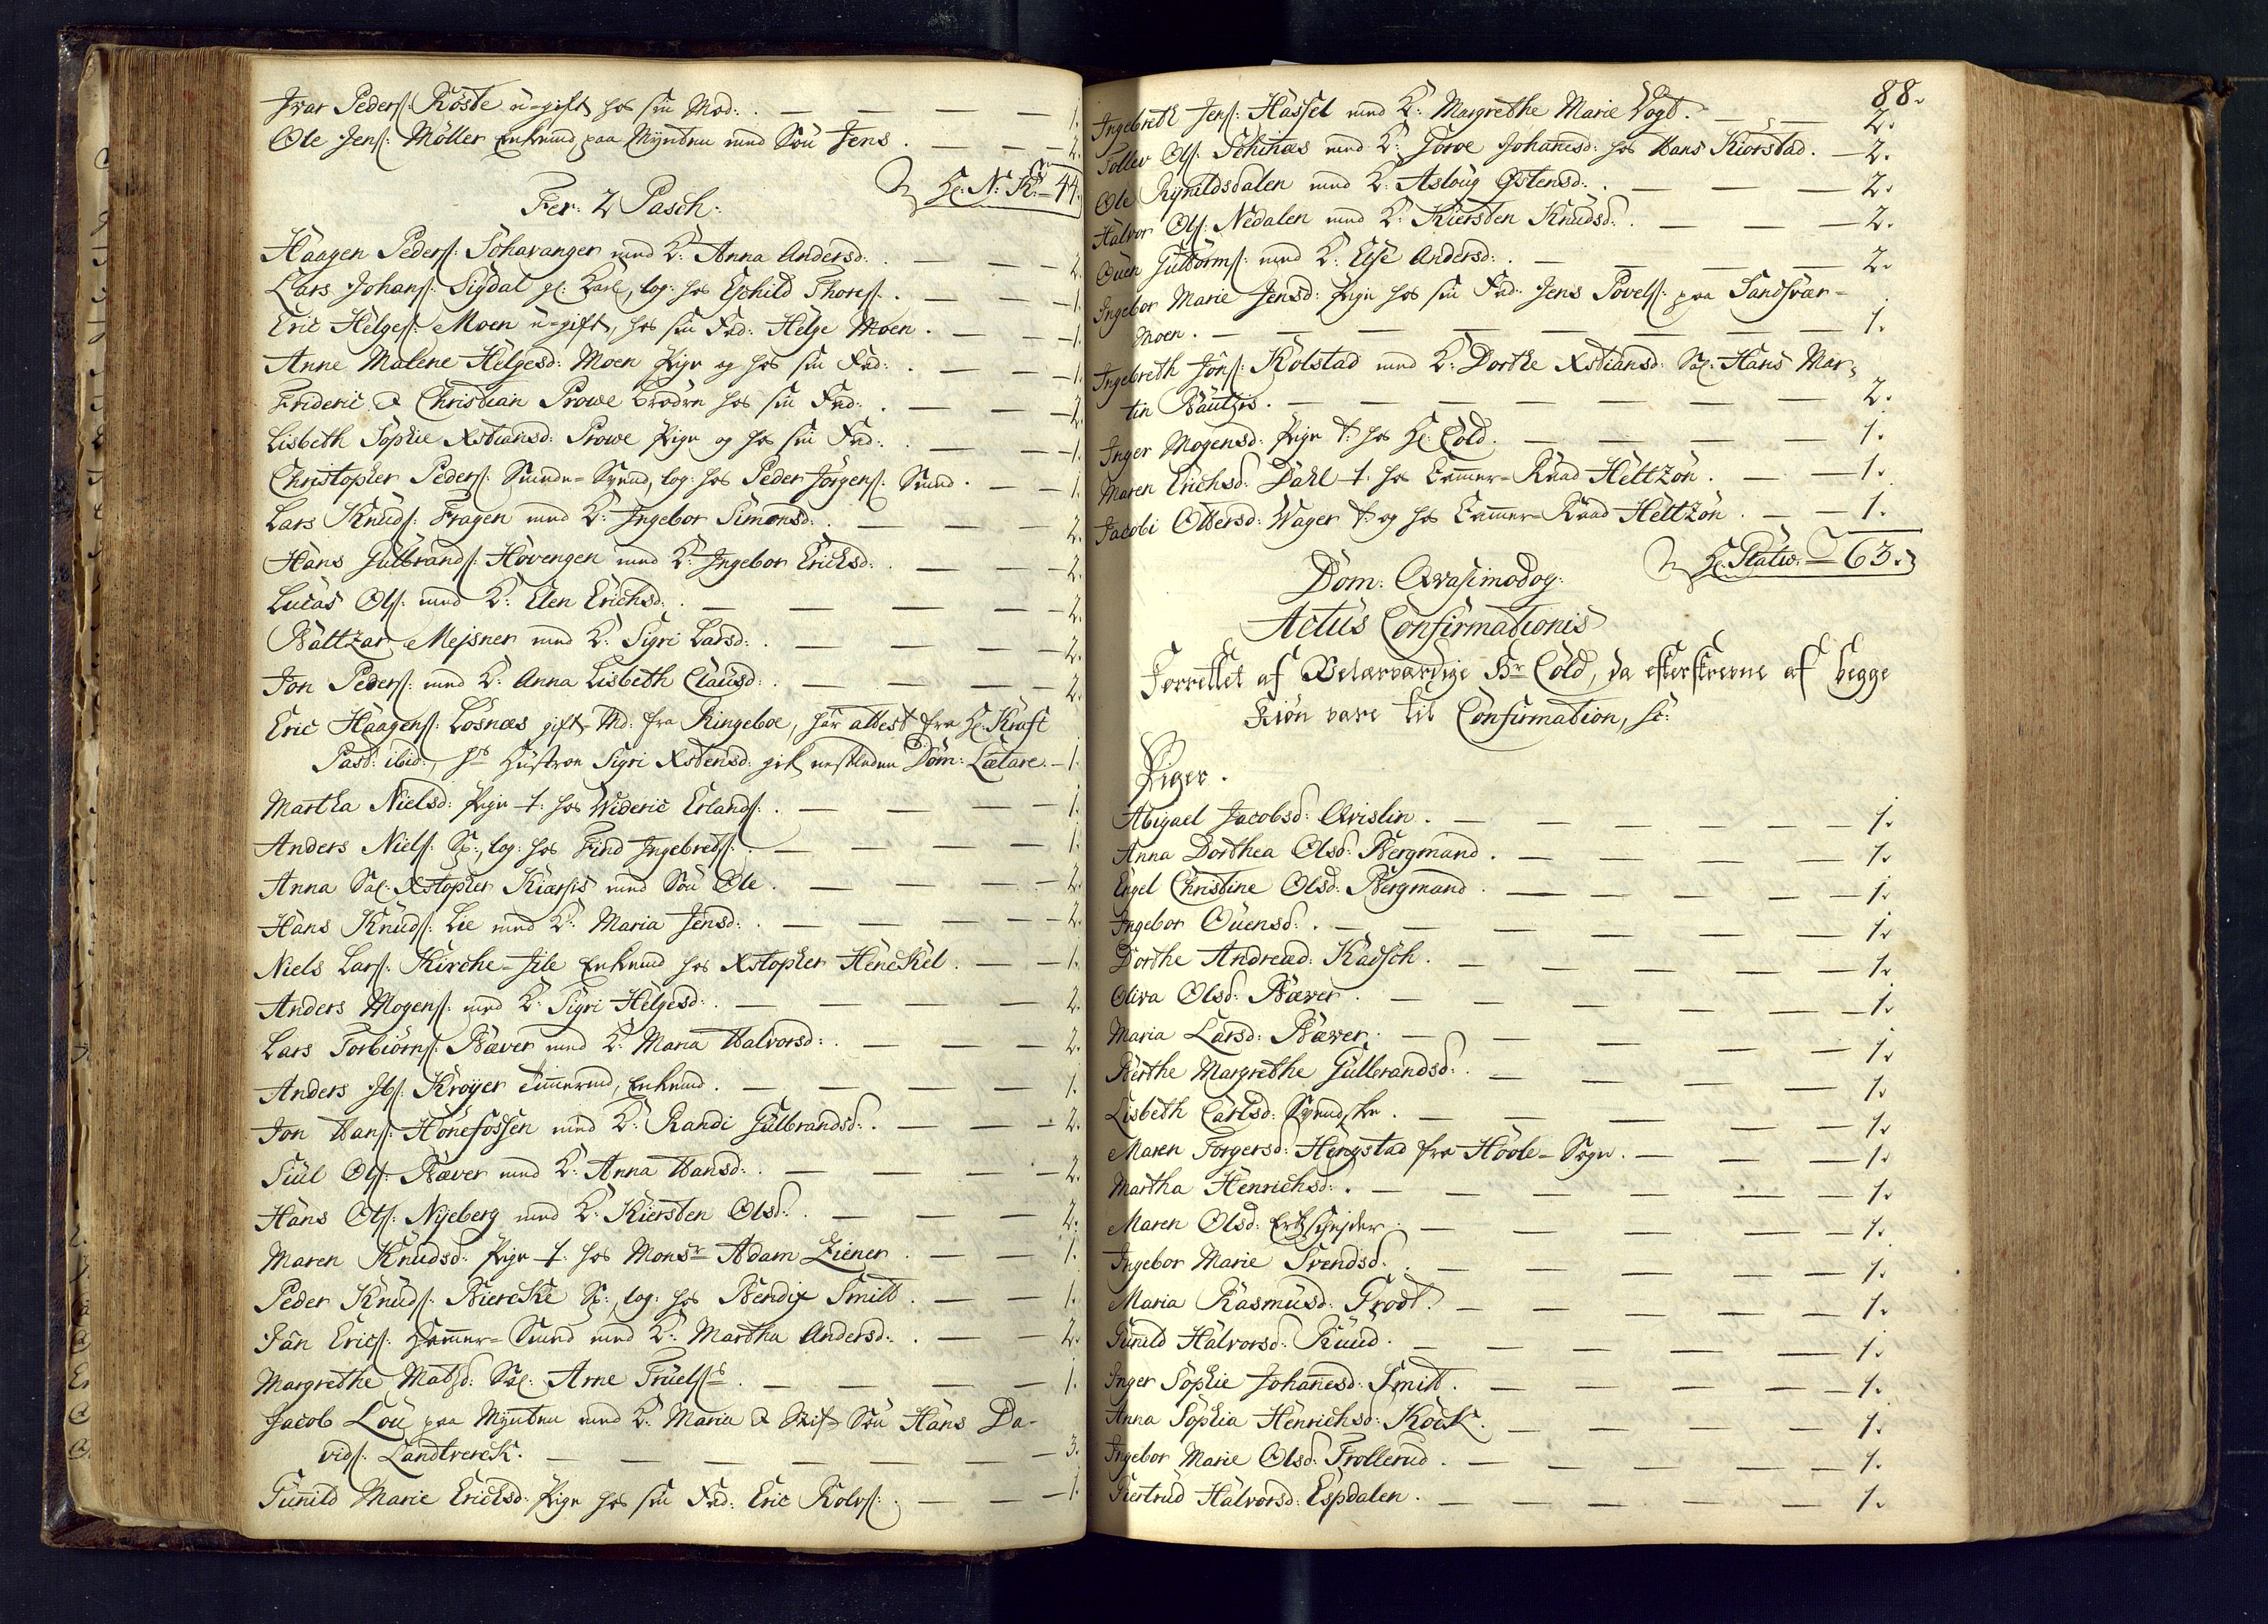 Ivar Peders: Röste u-gift hos sin Mod: . — — — — 1.
Ole Jens: Möller Enkemd paa Mynten med Sön Jens . — — — 2.
Hr: N: K: — 44.
Fer: 2 Pasch:
Haagen Peders: Schavanger med K: Anna Andersd: . — — — 2.
Lars Johans: Sigdal gl: Karl, log: hos Eschild Thores: . — — — 1.
Eric Helges: Moen u-gift, hos sin Fad: Helge Moen . — — — 1.
Anne Malene Helgesd: Moen Pige og hos sin Fad: . — — — 1.
Frideric & Christian Prowe brødre hos sin Fad: . — — — 2.
Lisbeth Sophie Xstiansd: Prowe Pige og hos sin Fad: . — — 1.
Christopher Peders: Smede-Svend, log: hos Peder Jörgens: Smed . — — 1.
Lars Knuds: Fragen med K: Ingebor Simonsd: . — — — 2.
Hans Gulbrands: Hovengen med K: Ingebor Ericksd: . — — — 2.
Lucas Ols: med K: Elen Erichsd: . — — — — 2.
Baltzar Mejsner med K: Sigri Larsd: . — — — — 2.
Jon Peders: med K: Anna Lisbeth Clausd: . — — — — 2.
Eric Haagens: Losnæs gift Md: fra Ringeboe, har attest fra Hr: Kraft
Past: ibid:, hs Hustroe Sigri Xstensd: gik nestleden Dom: Lætare. — 1.
Martha Nielsd: Pige t: hos Wideric Erlands: . — — — — 1.
Anders Niels: Sp:, log: hos Find Ingebrets: . — — — — 1.
Anna Sal: Xstopher Kiærsis med Sön Ole . — — — — 2.
Hans Knuds: Lie med K: Maria Jensd: . — — — — 2.
Niels Lars: Kirche-Jile Enkemd hos Xstopher Henckel . — — 1.
Anders Mogens: med K: Sigri Helgesd: . — — — — 2.
Lars Torbiörns: Bæver med K: Maria Halvorsd: . — — — 2.
Anders Ibs: Kroyer Timmermd, Enkemd . — — — — 1.
Jon Hans: Hönefossen med K: Randi Gulbrandsd: . — — — 2.
Siul Ols: Bæver med K: Anna Hansd: . — — — — 2.
Hans Ols: Nyeberg med K: Kiersten Olsd: . — — — 2.
Maren Knudsd: Pige t: hos Monsr Adam Ziener . — — 1.
Peder Knuds: Biercke Sp:, log: hos Bendix Smitt . — — 1.
Jan Erics: Hammer-Smed med K: Martha Andersd: . — — 2.
Margrethe Matsd: Sal: Arne Truels: . — — — — 1.
Jacob Lou paa Mynten med K: Maria & Stif-Sön Hans Da-
vids: Landtverck . — — — — — — — 3.
Gunild Marie Ericksd: Pige hos sin Fad: Eric Rolvs: . — — — 1.
88.
Ingebreth Jens: Hassel med K: Margrethe Marie Vogt . — — 2.
Tollev Ols: Schinæs med K: Torve Johansd: hos Hans Kiorstad. — 2.
Ole Rynildsdalen med K: Asloug Østensd: . — — — 2.
Halvor Ols: Nedalen med K: Kiersten Knudsd: . — — — 2.
Ouen Guttorms: med K: Else Andersd: . — — — — 2.
Ingebor Marie Jensd: Pige hos sin Fad: Jens Povels: paa Sandsvær-
Moen . — — — — — — — — 1.
Ingebreth Jöns: Kolstad med K: Dorthe Xstiansd: Sal: Hans Mar-
tin Bautzis . — — — — — — — 2.
Inger Mogensd: Pige t: hos Hr: Cold . — — — — 1.
Maren Erichsd: Dahl t: hos Cammer-Raad Heltzön . — — 1.
Jacobi Ottersd: Wager t: og hos Cammer-Raad Heltzön . — — 1.
Hr: Statw: — 63.
Dom: Qvasimodog:
Actus Confirmationis
Forrettet af Velærværdige Hr Cold, da efterskrevne af begge
Kiön vare til Confirmation, sc:
Piger .
Abigael Jacobsd: Qvislin . — — — — — — 1.
Anna Dorthea Olsd: Bergmand . — — — — — 1.
Engel Christine Olsd: Bergmand . — — — — — 1.
Ingebor Ouensd: . — — — — — — — 1.
Dorthe Andread: Kadsch . — — — — — — 1.
Oliva Olsd: Bæver . — — — — — — 1.
Maria Larsd: Bæver . — — — — — — 1.
Berthe Margrethe Gulbrandsd: . — — — — — 1.
Lisbeth Carlsd: Svendske . — — — — — — 1.
Maren Torgersd: Hengstad fra Hövle-Sogn . — — — 1.
Martha Henrichsd: . — — — — — — — 1.
Maren Olsd: Ertskyder . — — — — — — 1.
Ingebor Marie Svendsd: . — — — — — — 1.
Maria Rasmusd: Trodt . — — — — — — 1.
Gunild Halvorsd: Ruud . — — — — — — 1.
Inger Sophie Johannesd: Smitt . — — — — — 1.
Anna Sophia Henrichsd: Kock . — — — — — 1.
Ingebor Marie Olsd: Trollerud . — — — — — 1.
Giertrud Halvorsd: Espdalen . — — — — — 1.